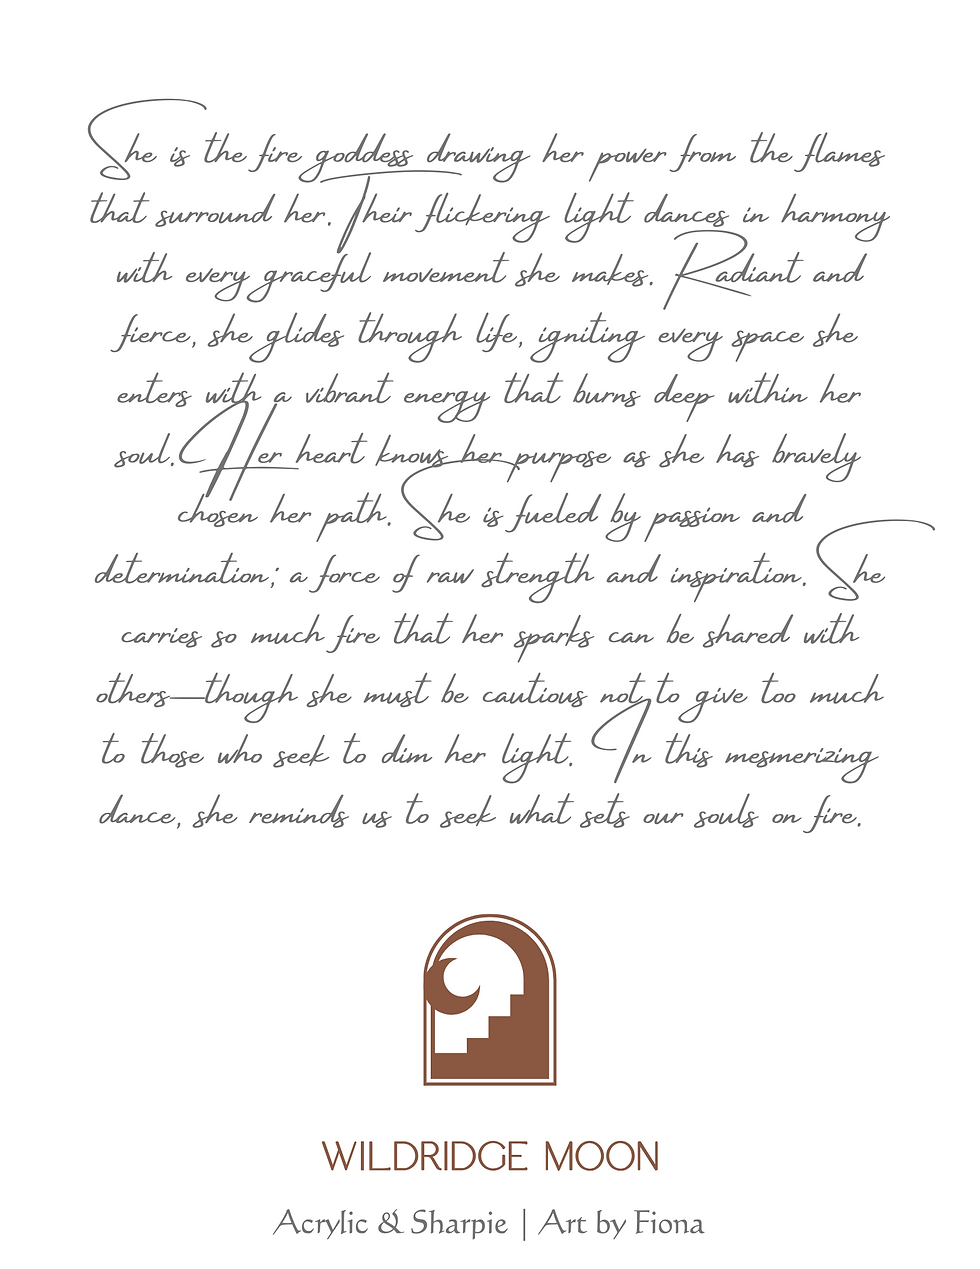 She is the fire goddess drawing her power from the flames
that surround her. Their flickering light dances in harmony
with every graceful movement she makes. Radiant and
fierce, she glides through life, igniting every space she
enters with a vibrant energy that burns deep within her
soul. Her heart knows her purpose as she has bravely
chosen her path. She is fueled by passion and
determination; a force of raw strength and inspiration. She
carries so much fire that her sparks can be shared with
others—though she must be cautious not to give too much
to those who seek to dim her light. In this mesmerizing
dance, she reminds us to seek what sets our souls on fire.
WILDRIDGE MOON
Acrylic & Sharpie | Art by Fiona